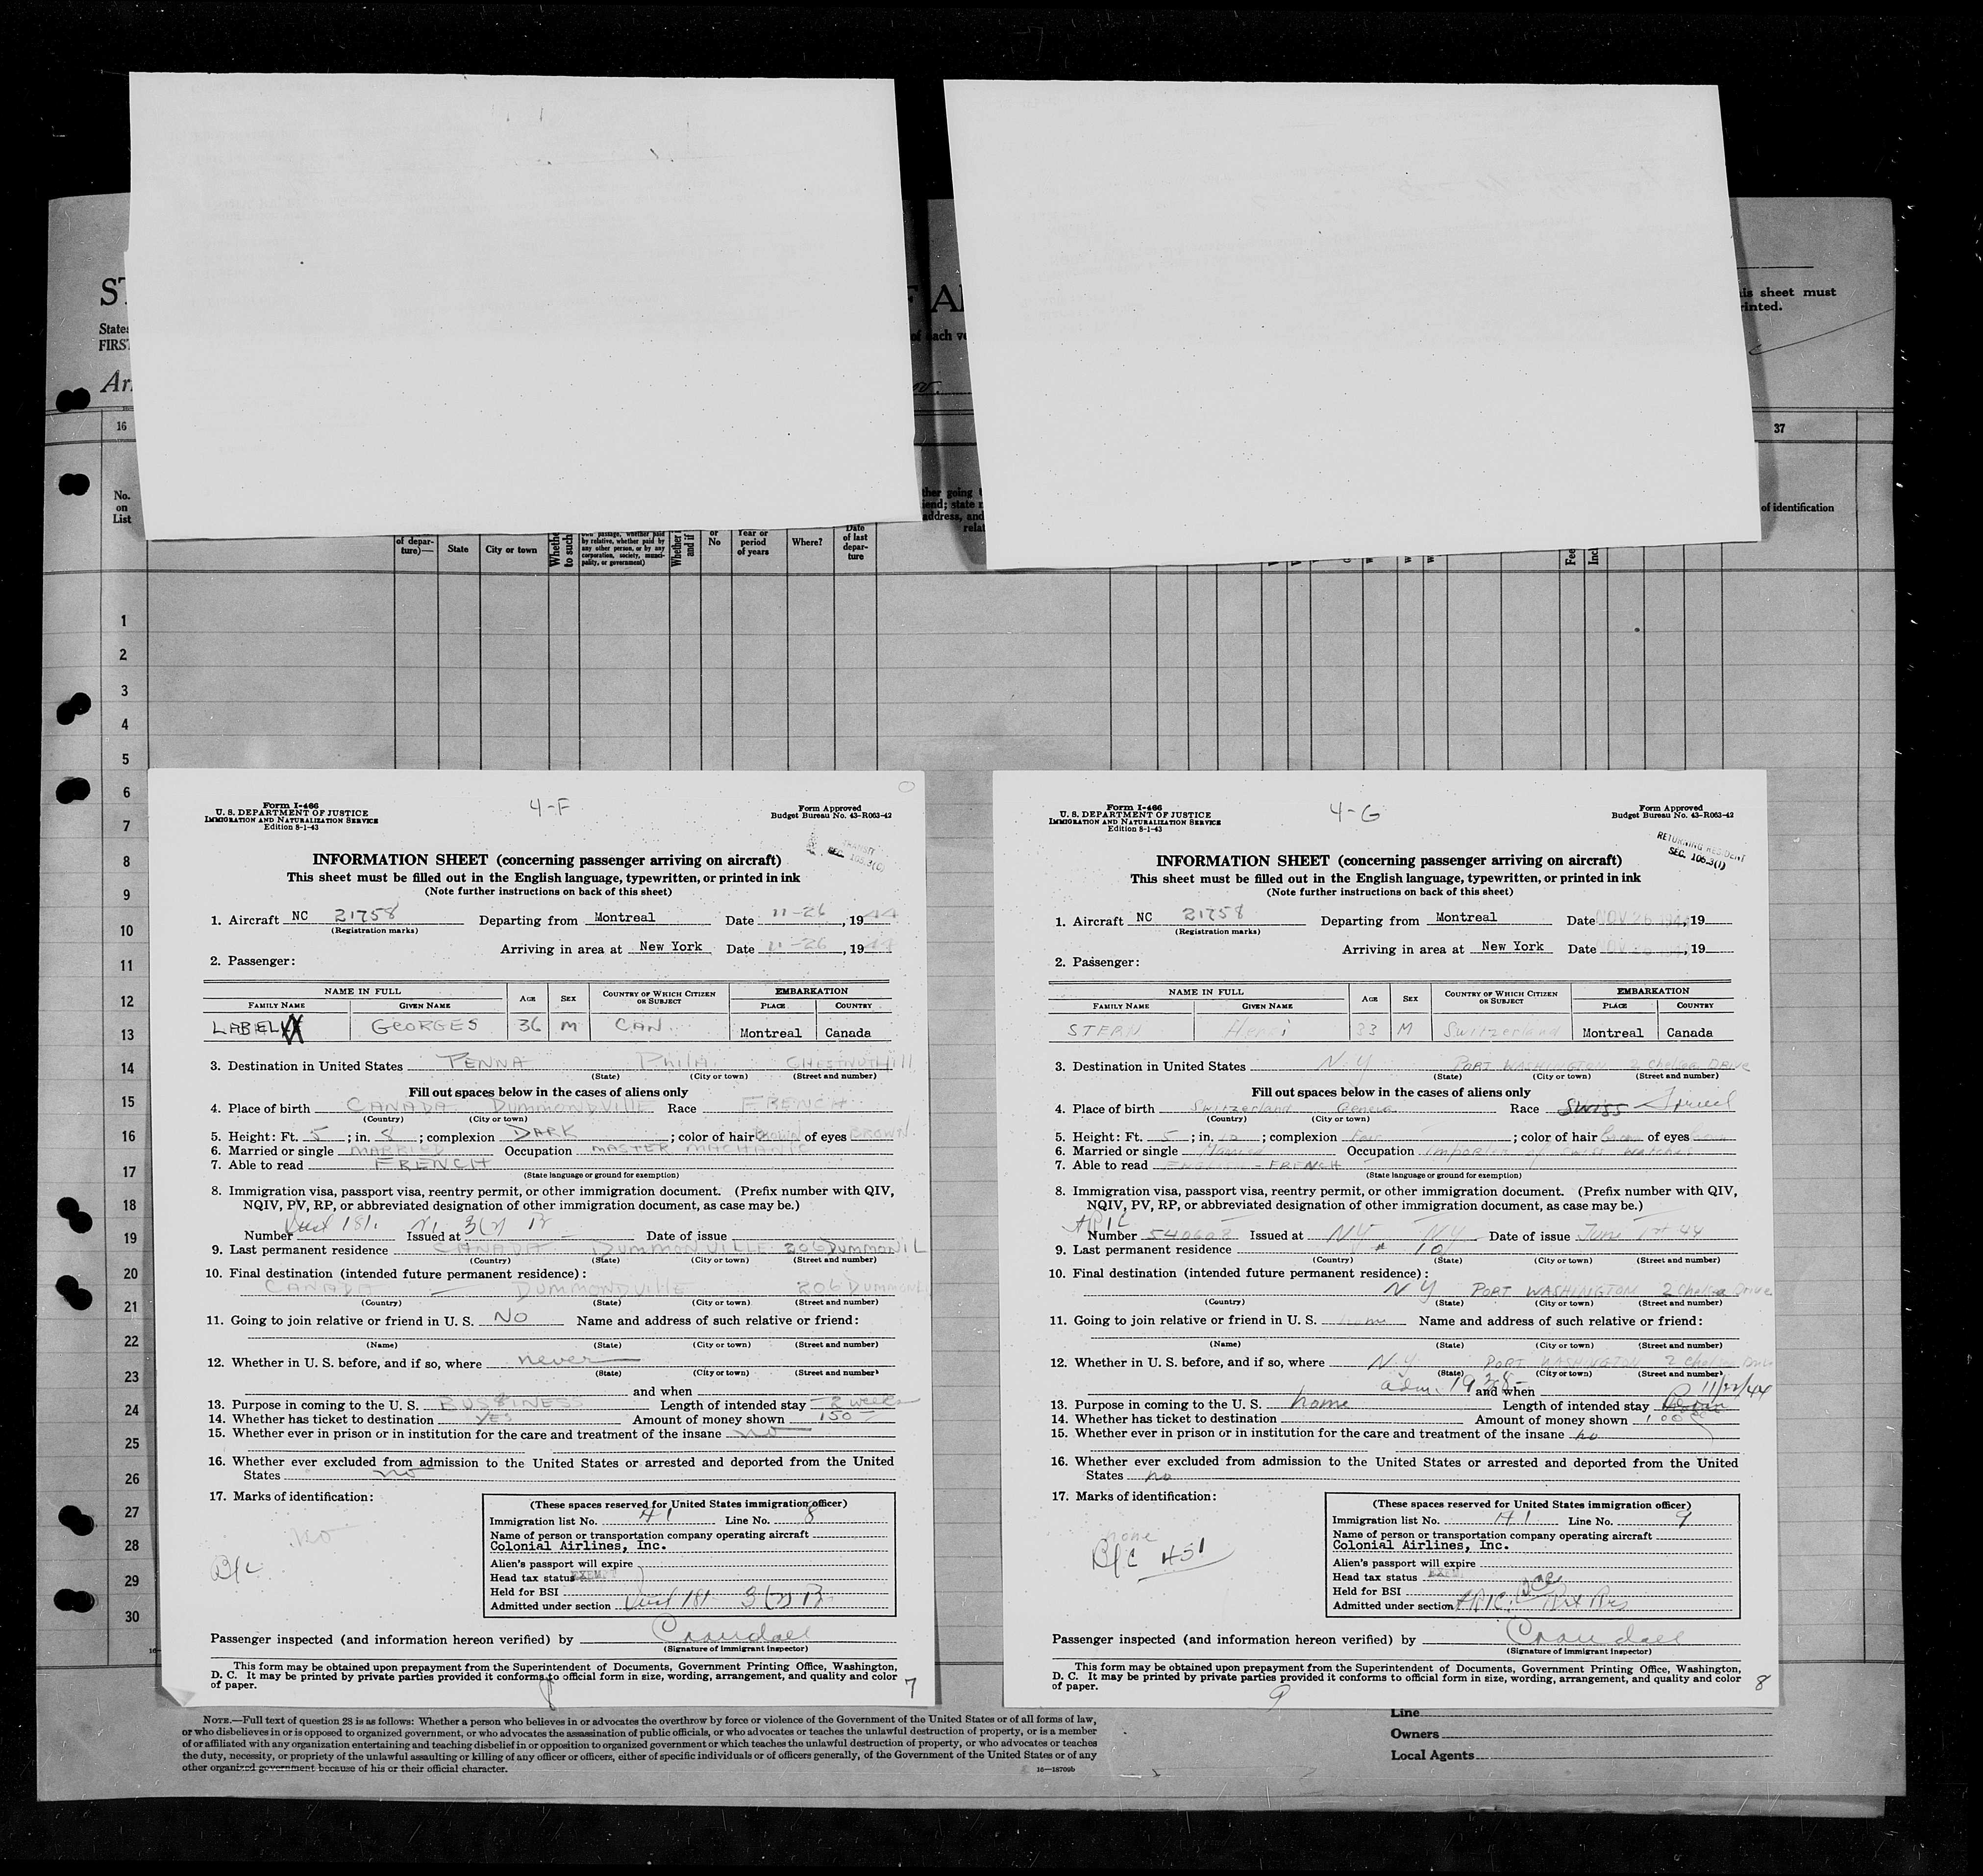 is sheet must
rinted.
State
FIRS
of each ve
16
37
No.
on
List
ther going
iend; state
address, and
relat
of identification
of depar-
ture)—
State
City or town
own passage, whether paid
by relative, whether paid by
any other person, or by any
corporation, society, munici-
pality, or government)
or
No
Year or
period
of years
Where?
Date
of last
depar-
ture
1
2
3
4
5
6
7
8
9
10
11
12
13
14
15
16
17
18
19
20
21
22
23
24
25
26
27
28
29
30
Form I-466
U. S. DEPARTMENT OF JUSTICE
IMMIGRATION AND NATURALIZATION SERVICE
Edition 8-1-43
4-F
Form Approved
Budget Bureau No. 43-R063-42
INFORMATION SHEET (concerning passenger arriving on aircraft)
This sheet must be filled out in the English language, typewritten, or printed in ink
(Note further instructions on back of this sheet)
1. Aircraft NC 21758 Departing from Montreal Date 11-26, 1944
(Registration marks)
Arriving in area at New York Date 11-26, 1944
2. Passenger:
NAME IN FULL AGE SEX COUNTRY OF WHICH CITIZEN OR SUBJECT EMBARKATION
FAMILY NAME GIVEN NAME PLACE COUNTRY
LABEL GEORGES 36 M CAN. Montreal Canada
3. Destination in United States PENNA PhilA. CHESTNUTHIll
(State) (City or town) (Street and number)
Fill out spaces below in the cases of aliens only
4. Place of birth CANADA DUMMONDVIllE Race FRENCH
(Country) (City or town)
5. Height: Ft. 5; in. 8; complexion DARK; color of hair BROWN of eyes BROWN
6. Married or single MARRIED Occupation MASTER MACHANIC
7. Able to read FRENCH
(State language or ground for exemption)
8. Immigration visa, passport visa, reentry permit, or other immigration document. (Prefix number with QIV,
NQIV, PV, RP, or abbreviated designation of other immigration document, as case may be.)
Number Issued at Date of issue
9. Last permanent residence CANADA DUMMONVILLE 206 DUMMONIL
(Country) (State) (City or town) (Street and number)
10. Final destination (intended future permanent residence):
CANADA DUMMONDVILLE 206 DUMMON
(Country) (State) (City or town) (Street and number)
11. Going to join relative or friend in U. S. NO Name and address of such relative or friend:
(Name) (State) (City or town) (Street and number)
12. Whether in U. S. before, and if so, where never
(State) (City or town) (Street and number)
and when
13. Purpose in coming to the U. S. BUSSINESS Length of intended stay 2 weeks
14. Whether has ticket to destination YES Amount of money shown 150
15. Whether ever in prison or in institution for the care and treatment of the insane no
16. Whether ever excluded from admission to the United States or arrested and deported from the United
States no
17. Marks of identification:
no
B/C
(These spaces reserved for United States immigration officer)
Immigration list No. 41 Line No. 8
Name of person or transportation company operating aircraft
Colonial Airlines, Inc.
Alien's passport will expire
Head tax status EXEMPT
Held for BSI
Admitted under section
Passenger inspected (and information hereon verified) by Crandall
(Signature of immigrant inspector)
This form may be obtained upon prepayment from the Superintendent of Documents, Government Printing Office, Washington,
D. C. It may be printed by private parties provided it conforms to official form in size, wording, arrangement, and quality and color
of paper.
7
Form I-466
U. S. DEPARTMENT OF JUSTICE
IMMIGRATION AND NATURALIZATION SERVICE
Edition 8-1-43
4-G
Form Approved
Budget Bureau No. 43-R063-42
RETURNING RESIDENT
SEC. 105.3(1)
INFORMATION SHEET (concerning passenger arriving on aircraft)
This sheet must be filled out in the English language, typewritten, or printed in ink
(Note further instructions on back of this sheet)
1. Aircraft NC 21758 Departing from Montreal Date NOV 26 1944, 19
(Registration marks)
Arriving in area at New York Date NOV 26 1944, 19
2. Passenger:
NAME IN FULL AGE SEX COUNTRY OF WHICH CITIZEN OR SUBJECT EMBARKATION
FAMILY NAME GIVEN NAME PLACE COUNTRY
STERN Henri 33 M Switzerland Montreal Canada
3. Destination in United States N.Y PORT WASHINGTON 2 Chelsea DRIVE
(State) (City or town) (Street and number)
Fill out spaces below in the cases of aliens only
4. Place of birth Switzerland Geneva Race SWISS
(Country) (City or town)
5. Height: Ft. 5; in. 10; complexion Fair; color of hair brown of eyes
6. Married or single Married Occupation importer of swiss watches
7. Able to read ENGLISH - FRENCH
(State language or ground for exemption)
8. Immigration visa, passport visa, reentry permit, or other immigration document. (Prefix number with QIV,
NQIV, PV, RP, or abbreviated designation of other immigration document, as case may be.)
Number 540608 Issued at NY NY Date of issue June 1st 44
9. Last permanent residence
(Country) (State) (City or town) (Street and number)
10. Final destination (intended future permanent residence):
NY PORT WASHINGTON 2 Chelsea Drive
(Country) (State) (City or town) (Street and number)
11. Going to join relative or friend in U. S. home Name and address of such relative or friend:
(Name) (State) (City or town) (Street and number)
12. Whether in U. S. before, and if so, where N.Y. PORT WASHINGTON 2 Chelsea Drive
(State) (City or town) (Street and number)
adm. 1938- and when 11/22/44
13. Purpose in coming to the U. S. home Length of intended stay
14. Whether has ticket to destination Amount of money shown 100
15. Whether ever in prison or in institution for the care and treatment of the insane no
16. Whether ever excluded from admission to the United States or arrested and deported from the United
States no
17. Marks of identification:
none
B/C 451
(These spaces reserved for United States immigration officer)
Immigration list No. 41 Line No. 9
Name of person or transportation company operating aircraft
Colonial Airlines, Inc.
Alien's passport will expire
Head tax status EXEMPT
Held for BSI
Admitted under section
Passenger inspected (and information hereon verified) by Crandall
(Signature of immigrant inspector)
This form may be obtained upon prepayment from the Superintendent of Documents, Government Printing Office, Washington,
D. C. It may be printed by private parties provided it conforms to official form in size, wording, arrangement, and quality and color
of paper.
9
8
NOTE.—Full text of question 28 is as follows: Whether a person who believes in or advocates the overthrow by force or violence of the Government of the United States or of all forms of law,
or who disbelieves in or is opposed to organized government, or who advocates the assassination of public officials, or who advocates or teaches the unlawful destruction of property, or is a member
of or affiliated with any organization entertaining and teaching disbelief in or opposition to organized government or which teaches the unlawful destruction of property, or who advocates or teaches
the duty, necessity, or propriety of the unlawful assaulting or killing of any officer or officers, either of specific individuals or of officers generally, of the Government of the United States or of any
other organized government because of his or their official character.
16—18709b
Line
Owners
Local Agents